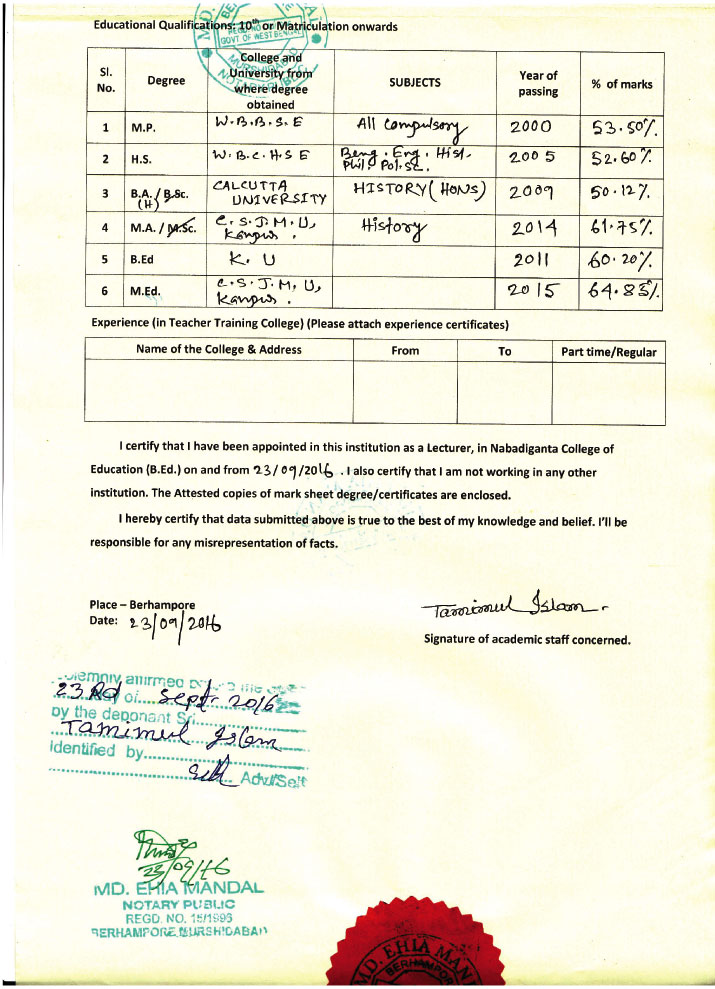 Educational Qualifications: 10th or Matriculation onwards
MD.
REGD. NO.
GOVT OF WEST BENGAL
MURSHIDABAD
NOTARY PUBLIC
Sl. No. Degree College and University from where degree obtained SUBJECTS Year of passing % of marks
1 M.P. W.B.B.S.E All Compulsory 2000 53.50%
2 H.S. W.B.C.H.S.E Beng. Eng. Hist. Phil. Pol.Sc. 2005 52.60%
3 B.A./B.Sc. (H) CALCUTTA UNIVERSITY HISTORY (HONS) 2009 50.12%
4 M.A. / M.Sc. C.S.J.M.U, Kanpur. History 2014 61.75%
5 B.Ed K.U 2011 60.20%
6 M.Ed. C.S.J.M.U, Kanpur. 2015 64.83%
Experience (in Teacher Training College) (Please attach experience certificates)
Name of the College & Address From To Part time/Regular
I certify that I have been appointed in this institution as a Lecturer, in Nabadiganta College of
Education (B.Ed.) on and from 23/09/2016 . I also certify that I am not working in any other
institution. The Attested copies of mark sheet degree/certificates are enclosed.
I hereby certify that data submitted above is true to the best of my knowledge and belief. I'll be
responsible for any misrepresentation of facts.
Place – Berhampore
Date: 23/09/2016
Tamimul Islam.
Signature of academic staff concerned.
Solemnly affirmed before me
23Rd day of Sept. 2016
by the deponant Sri
Tamimul Islam
identified by
Self Advt/Self
23/09/16
MD. EHIA MANDAL
NOTARY PUBLIC
REGD. NO. 15/1996
BERHAMPORE, MURSHIDABAD
MD. EHIA MAN
BERHAMPORE